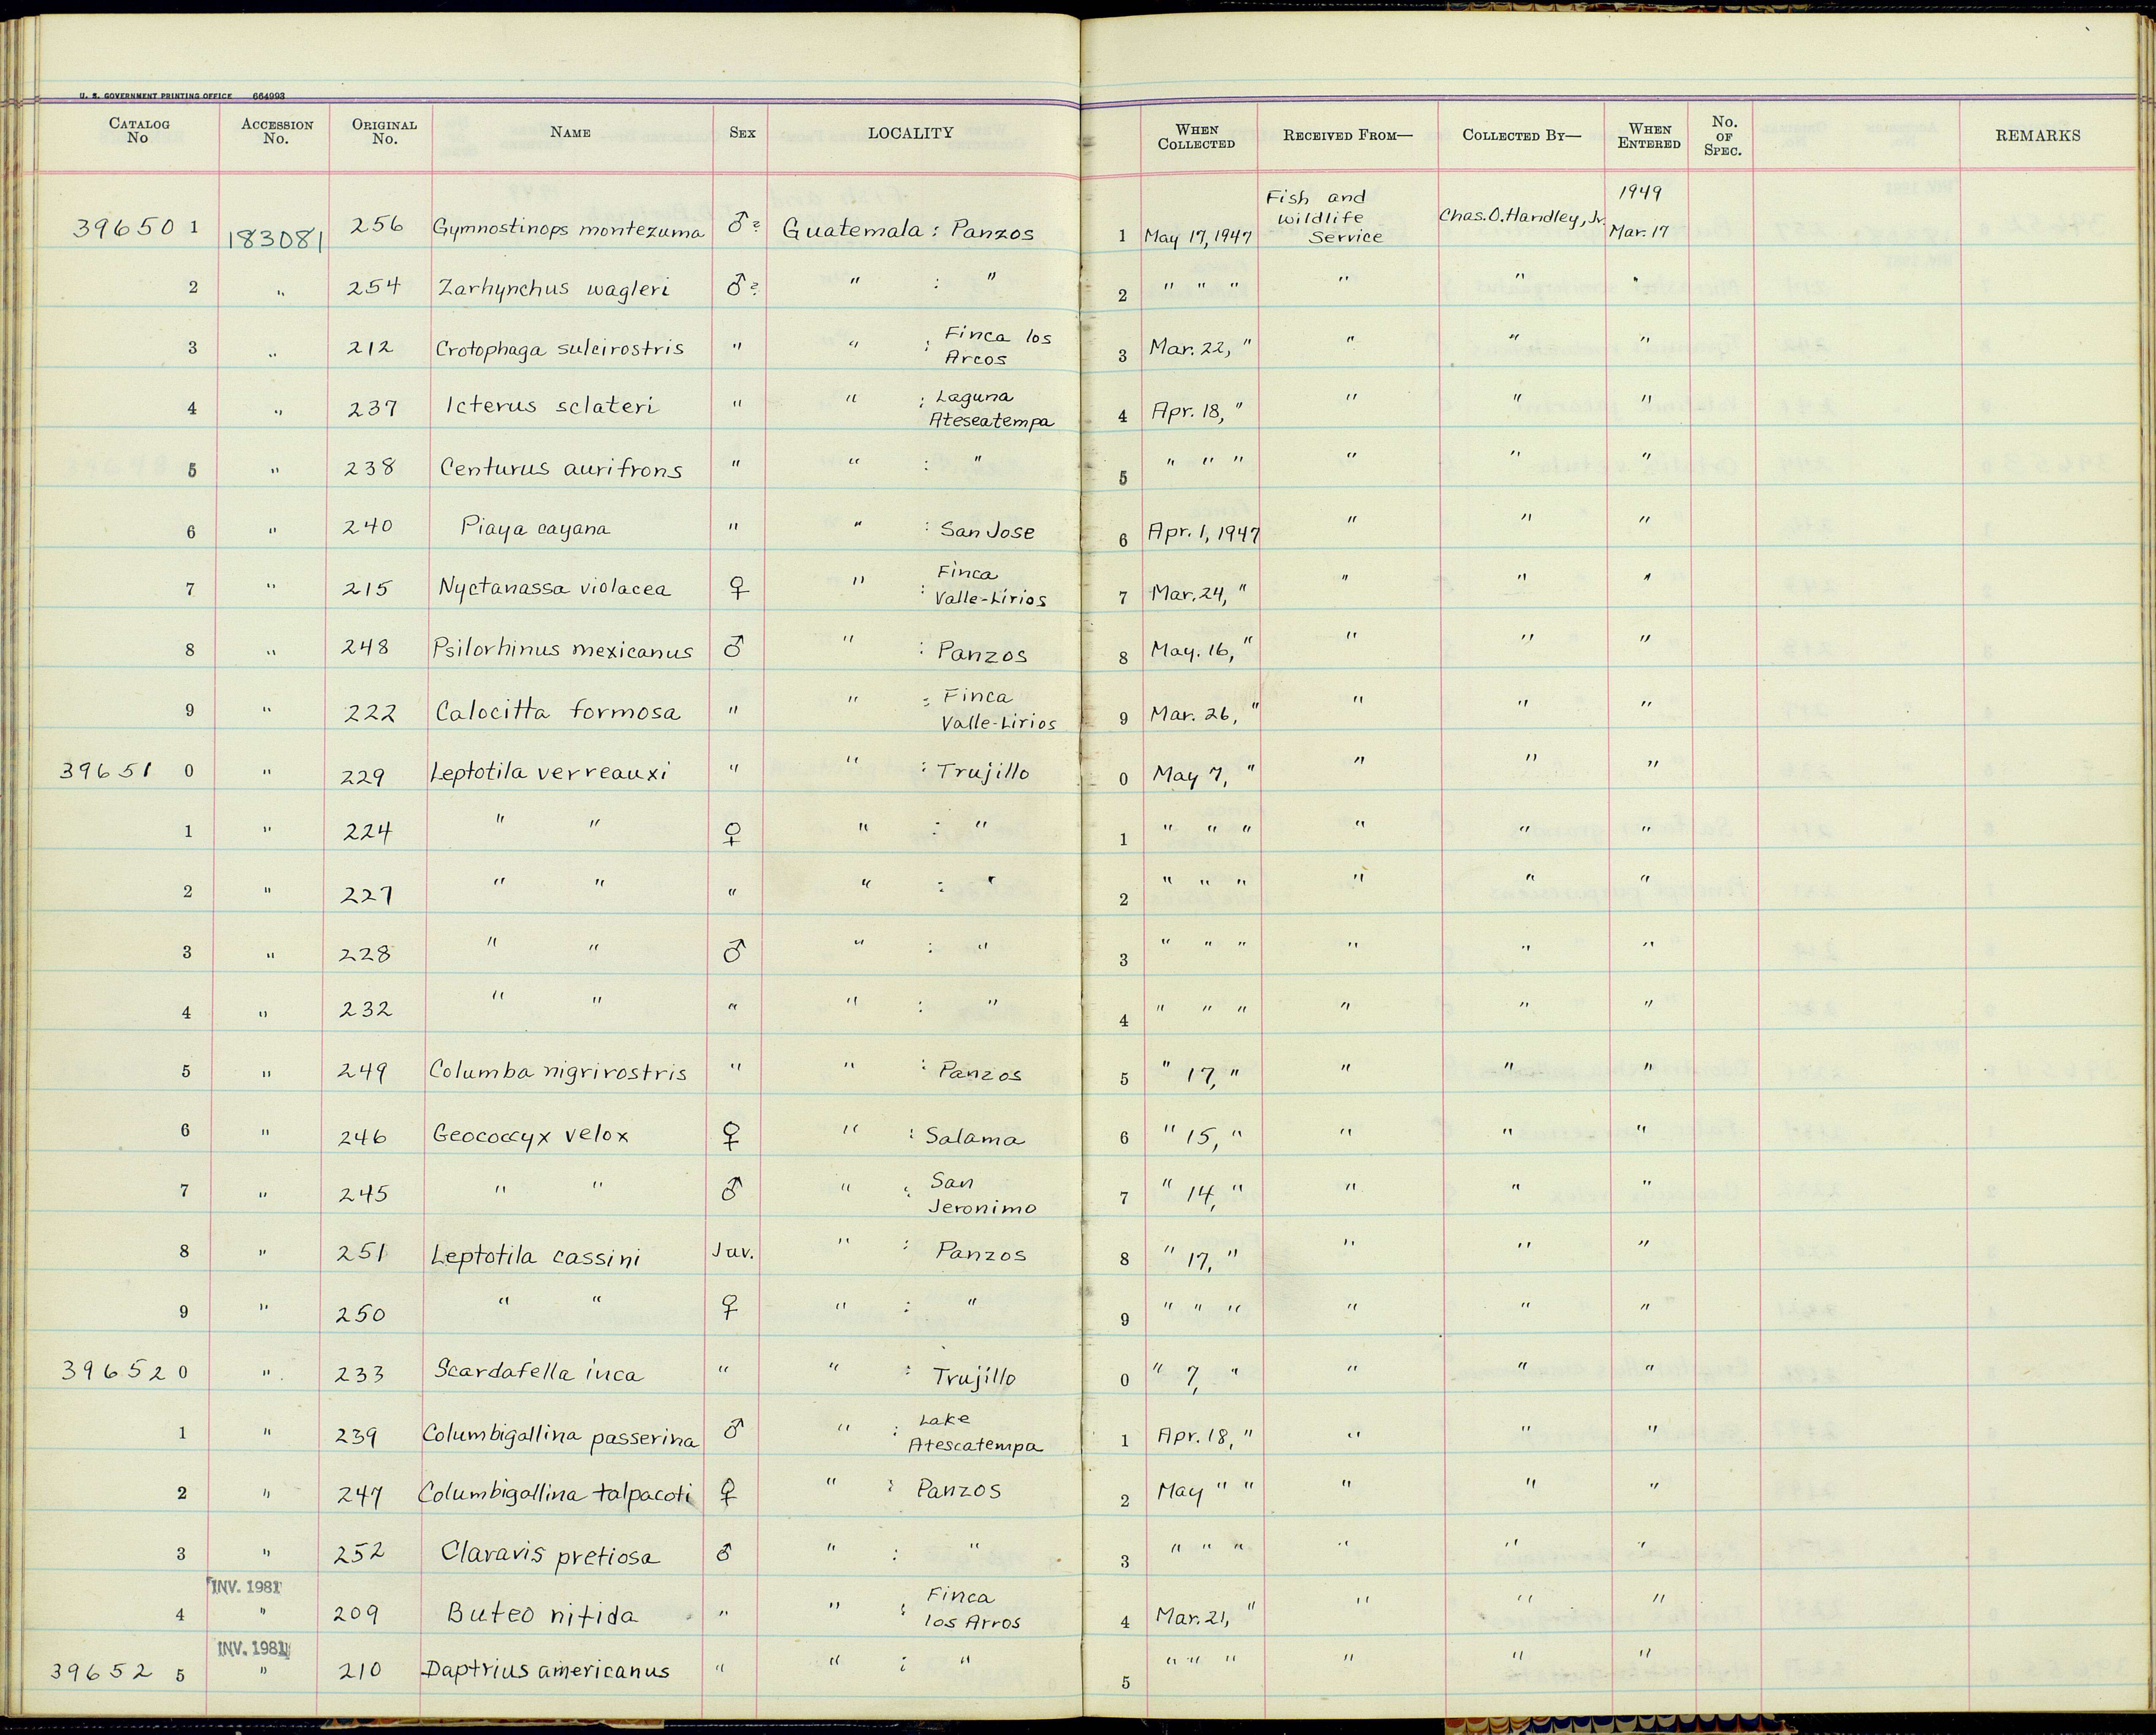 U. S. GOVERNMENT PRINTING OFFICE 664993
CATALOG No ACCESSION No. ORIGINAL No. NAME SEX LOCALITY WHEN COLLECTED RECEIVED FROM— COLLECTED BY— WHEN ENTERED No. OF SPEC. REMARKS
39650 1 183081 256 Gymnostinops montezuma ♂? Guatemala : Panzos 1 May 17, 1947 Fish and Wildlife Service Chas. O. Handley, Jr. 1949 Mar. 17
2 " 254 Zarhynchus wagleri ♂? " : " 2 " " " " " "
3 " 212 Crotophaga sulcirostris " " : Finca los Arcos 3 Mar. 22, " " " "
4 " 237 Icterus sclateri " " : Laguna Ateseatempa 4 Apr. 18, " " " "
5 " 238 Centurus aurifrons " " : " 5 " " " " " "
6 " 240 Piaya cayana " " : San Jose 6 Apr. 1, 1947 " " "
7 " 215 Nyctanassa violacea ♀ " : Finca Valle-Lirios 7 Mar. 24, " " " "
8 " 248 Psilorhinus mexicanus ♂ " : Panzos 8 May. 16, " " " "
9 " 222 Calocitta formosa " " : Finca Valle-Lirios 9 Mar. 26, " " " "
39651 0 " 229 Leptotila verreauxi " " : Trujillo 0 May 7, " " " "
1 " 224 " " ♀ " : " 1 " " " " " "
2 " 227 " " " " : " 2 " " " " " "
3 " 228 " " ♂ " : " 3 " " " " " "
4 " 232 " " " " : " 4 " " " " " "
5 " 249 Columba nigrirostris " " : Panzos 5 " 17, " " " "
6 " 246 Geococcyx velox ♀ " : Salama 6 " 15, " " " "
7 " 245 " " ♂ " : San Jeronimo 7 " 14, " " " "
8 " 251 Leptotila cassini Juv. " : Panzos 8 " 17, " " " "
9 " 250 " " ♀ " : " 9 " " " " " "
39652 0 " 233 Scardafella inca " " : Trujillo 0 " 7, " " " "
1 " 239 Columbigallina passerina ♂ " : Lake Atescatempa 1 Apr. 18, " " " "
2 " 247 Columbigallina talpacoti ♀ " : Panzos 2 May " " " " "
3 " 252 Claravis pretiosa ♂ " : " 3 " " " " " "
INV. 1981
4 " 209 Buteo nitida " " : Finca los Arros 4 Mar. 21, " " " "
INV. 1981
39652 5 " 210 Daptrius americanus " " : " 5 " " " " " "